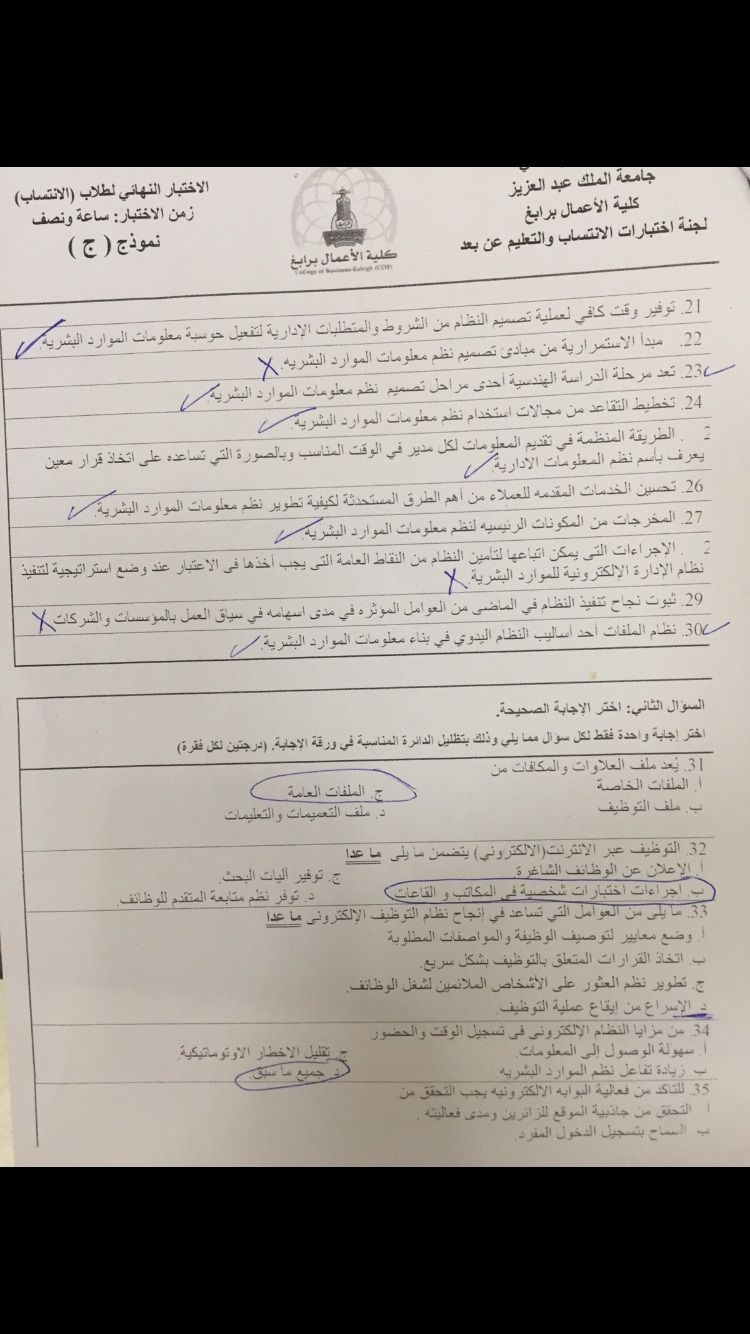 جامعة الملك عبد العزيز
كلية الأعمال برابغ
لجنة اختبارات الانتساب والتعليم عن بعد
كلية الأعمال برابغ
College of Business-Rabigh (COB)
الاختبار النهائي لطلاب (الانتساب)
زمن الاختبار: ساعة ونصف
نموذج ( ج )
21. توفير وقت كافي لعملية تصميم النظام من الشروط والمتطلبات الإدارية لتفعيل حوسبة معلومات الموارد البشرية.
22. مبدأ الاستمرارية من مبادئ تصميم نظم معلومات الموارد البشريه.
23. تعد مرحلة الدراسة الهندسية أحدى مراحل تصميم نظم معلومات الموارد البشرية.
24. تخطيط التقاعد من مجالات استخدام نظم معلومات الموارد البشرية.
2 . الطريقة المنظمة في تقديم المعلومات لكل مدير في الوقت المناسب وبالصورة التي تساعده على اتخاذ قرار معين
يعرف بأسم نظم المعلومات الادارية.
26. تحسين الخدمات المقدمه للعملاء من أهم الطرق المستحدثة لكيفية تطوير نظم معلومات الموارد البشرية.
27. المخرجات من المكونات الرئيسيه لنظم معلومات الموارد البشريه.
2 . الإجراءات التى يمكن اتباعها لتأمين النظام من النقاط العامة التى يجب أخذها فى الاعتبار عند وضع استراتيجية لتنفيذ
نظام الإدارة الإلكترونية للموارد البشرية.
29. ثبوت نجاح تنفيذ النظام في الماضى من العوامل المؤثره في مدى اسهامه في سياق العمل بالمؤسسات والشركات
30. نظام الملفات أحد أساليب النظام اليدوي في بناء معلومات الموارد البشرية.
السؤال الثاني: اختر الإجابة الصحيحة.
اختر إجابة واحدة فقط لكل سؤال مما يلي وذلك بتظليل الدائرة المناسبة في ورقة الإجابة. (درجتين لكل فقرة)
31. يُعد ملف العلاوات والمكافات من
أ. الملفات الخاصة
ج. الملفات العامة.
ب. ملف التوظيف
د. ملف التعميمات والتعليمات
32. التوظيف عبر الانترنت(الالكتروني) يتضمن ما يلى ما عدا
أ. الإعلان عن الوظائف الشاغرة
ج. توفير آليات البحث.
ب. إجراءات اختبارات شخصية فى المكاتب و القاعات
د. توفر نظم متابعة المتقدم للوظائف.
33. ما يلى من العوامل التي تساعد في إنجاح نظام التوظيف الإلكترونى ما عدا
أ. وضع معايير لتوصيف الوظيفة والمواصفات المطلوبة
ب. اتخاذ القرارات المتعلق بالتوظيف بشكل سريع.
ج. تطوير نظم العثور على الأشخاص الملائمين لشغل الوظائف.
د. الإسراع من إيقاع عملية التوظيف.
34. من مزايا النظام الإلكترونى فى تسجيل الوقت والحضور
أ. سهولة الوصول إلى المعلومات.
ج. تقليل الاخطار الاوتوماتيكية.
ب. زيادة تفاعل نظم الموارد البشريه
د. جميع ما سبق.
35. للتاكد من فعالية البوابه الالكترونيه يجب التحقق من
أ. التحقق من جاذبية الموقع للزائرين ومدى فعاليته .
ب. السماح بتسجيل الدخول المفرد.